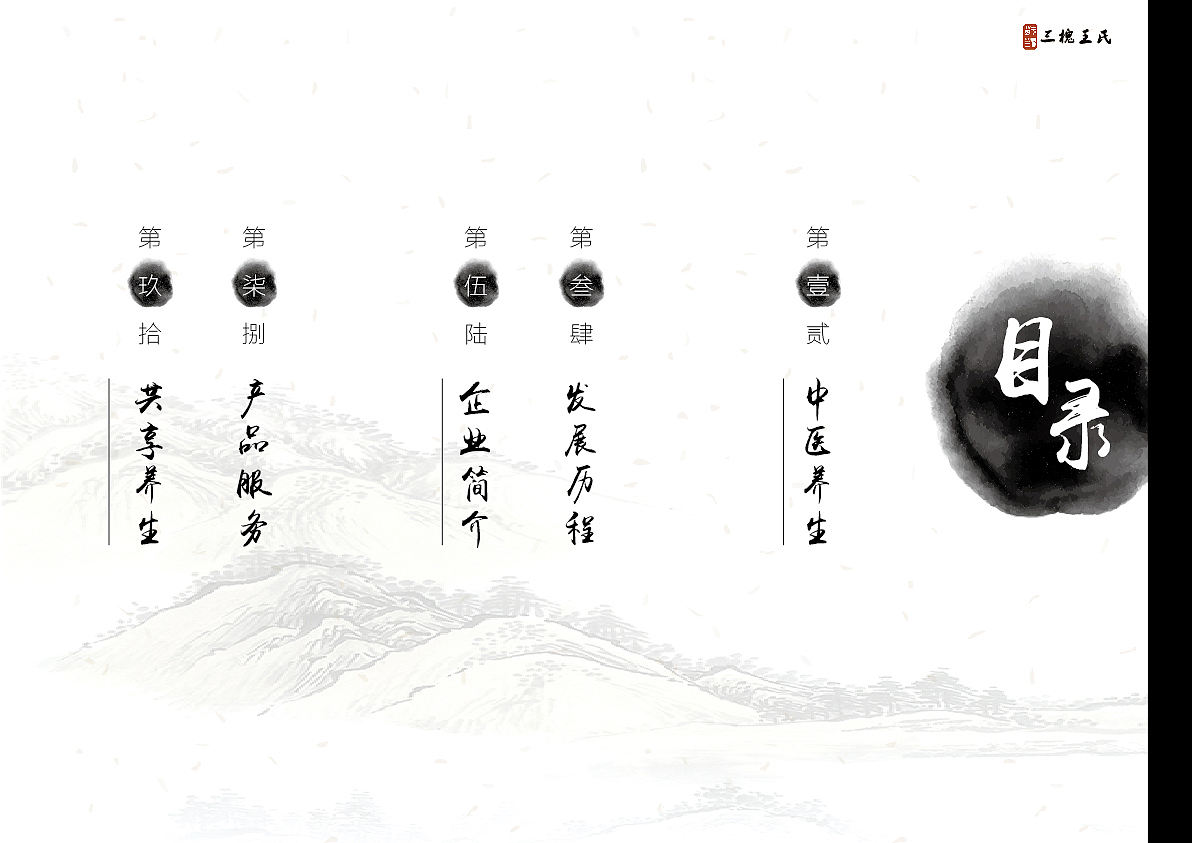 三槐王氏
目录
第壹贰
中医养生
第叁肆
发展历程
第伍陆
企业简介
第柒捌
产品服务
第玖拾
共享养生